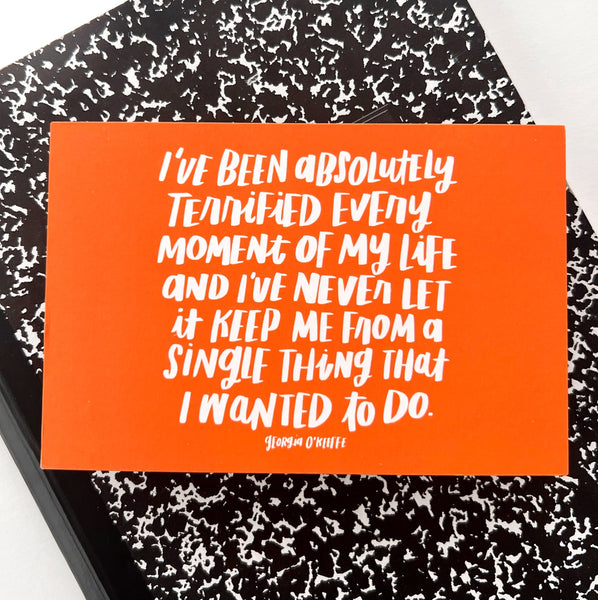 I'VE BEEN ABSOLUTELY
TERRIFIED EVERY
MOMENT OF MY LIFE
AND I'VE NEVER LET
it KEEP ME FROM A
SINGLE THING THAT
I WANTED to DO.
GEORGIA O'KEIFFE